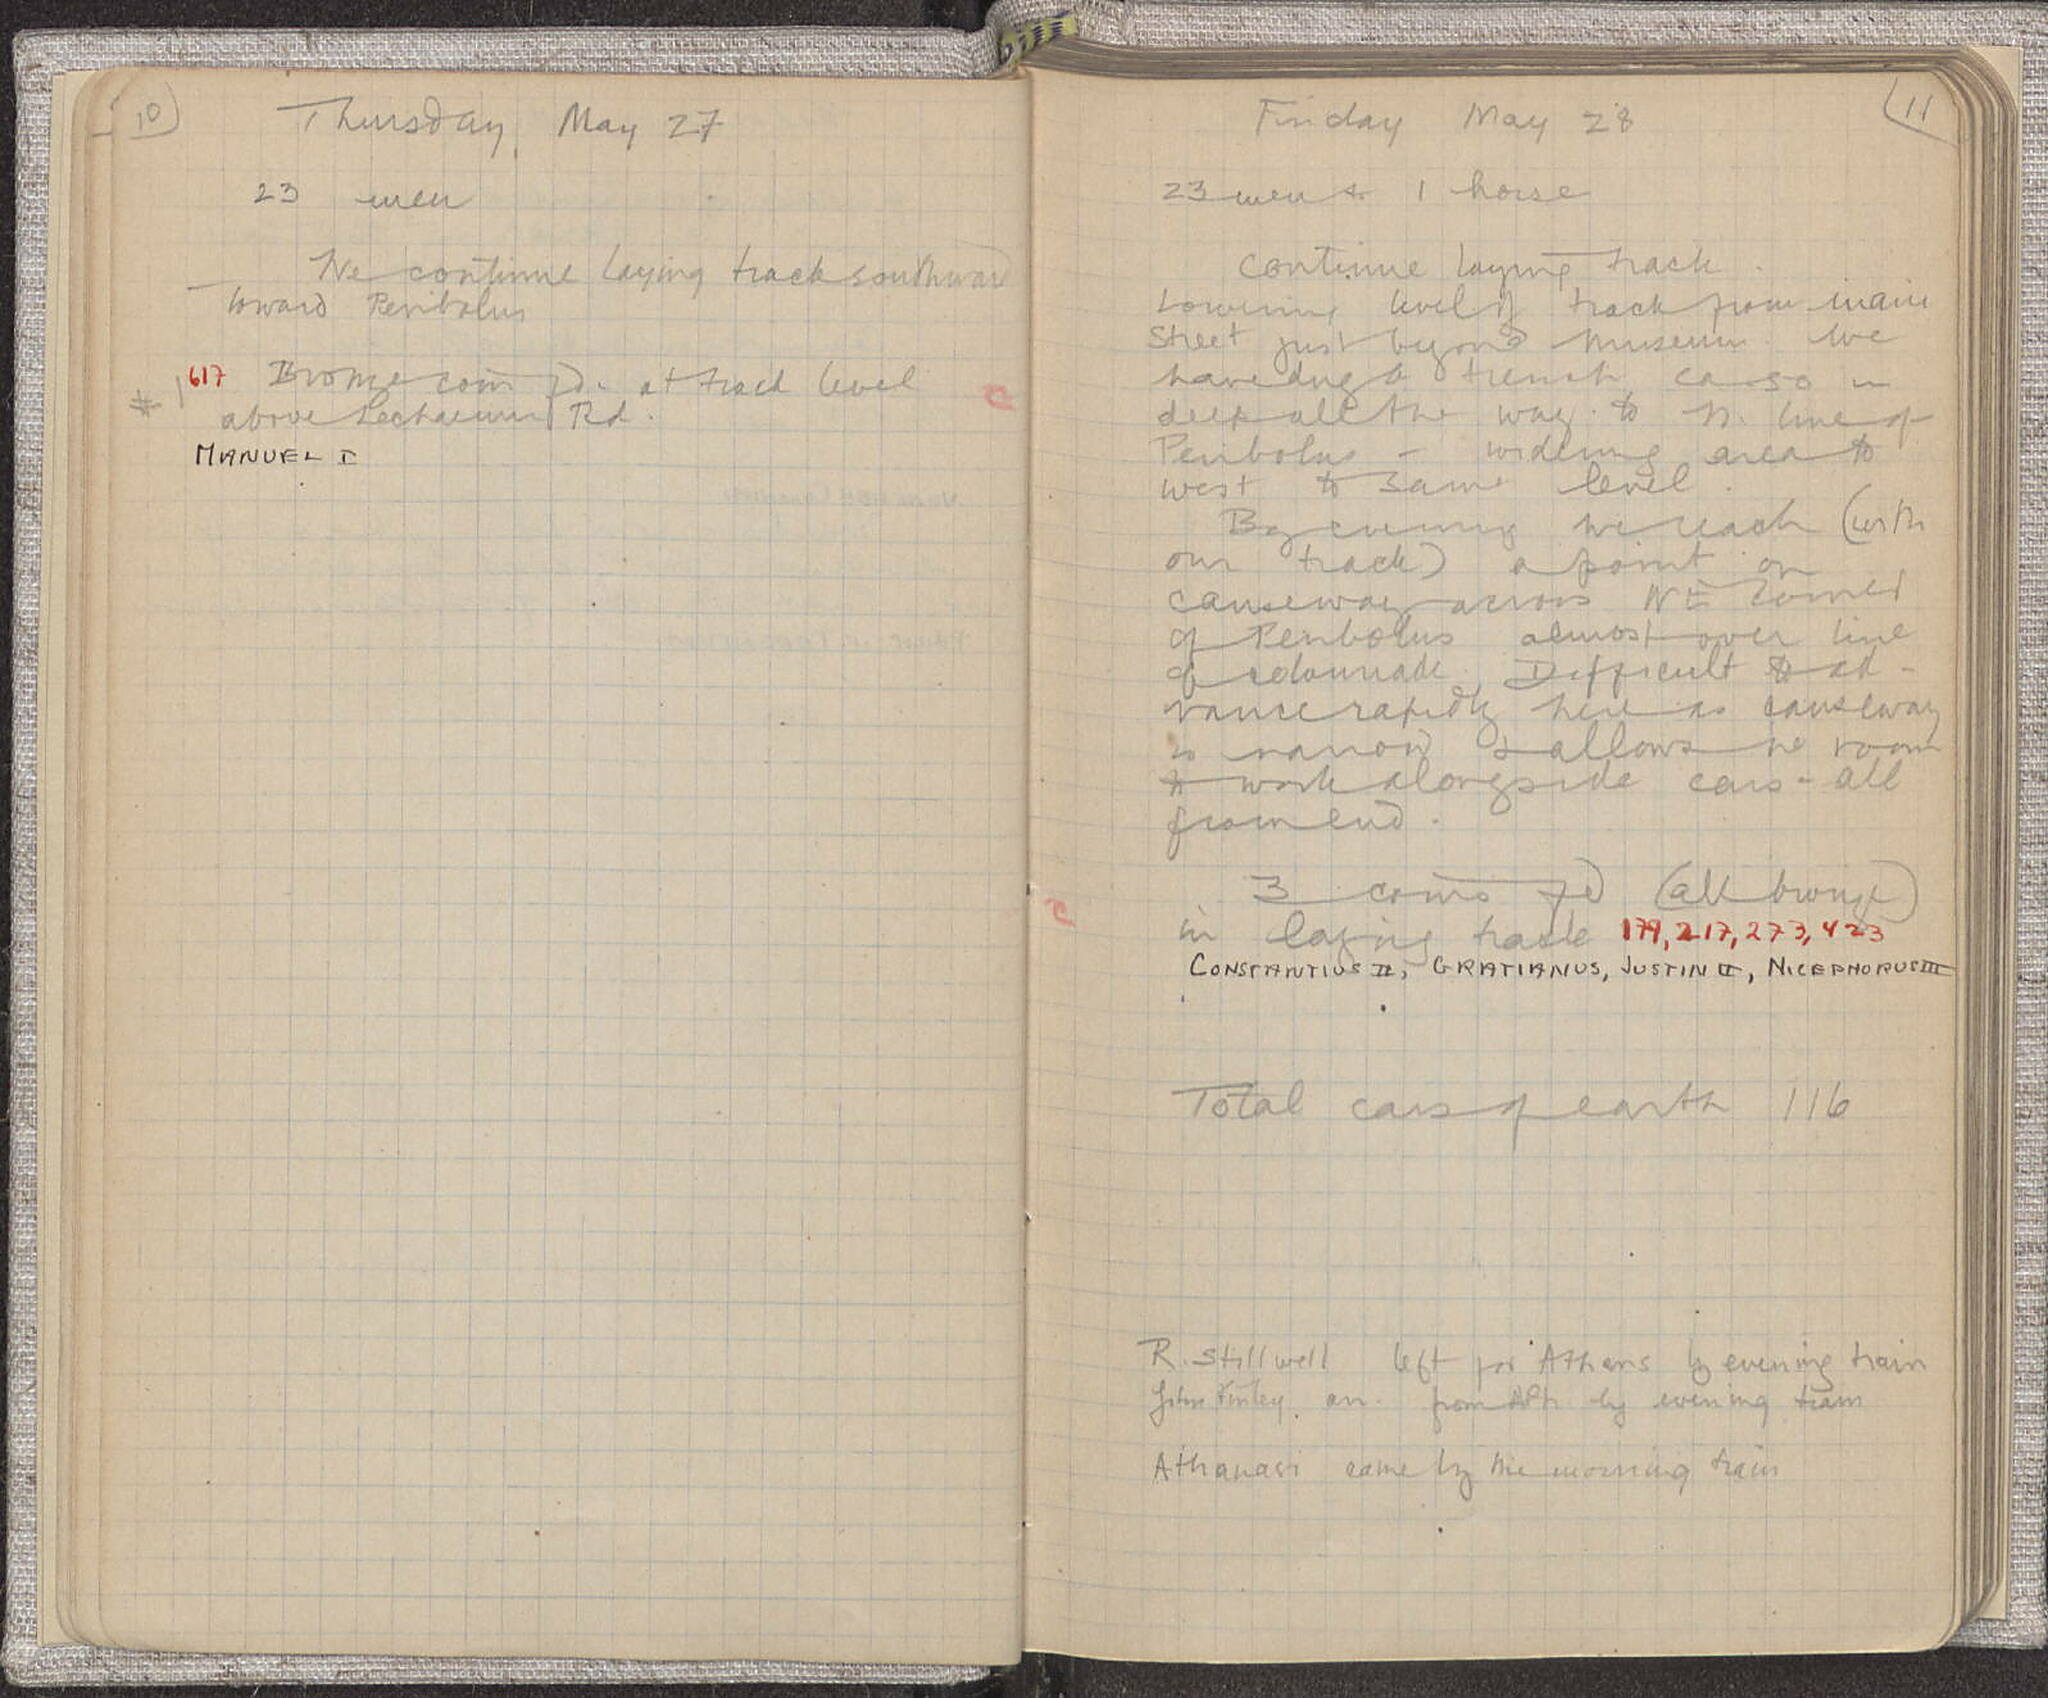 10
Thursday May 27
23 men
We continue laying track southward
toward Peribolus
617 Bronze coin fd. at track level
above Lechaeum Rd.
MANUEL I
C
11
Friday May 28
23 men & 1 horse
Continue laying track.
Lowering level of track from main
street just beyond Museum. We
have dug a trench ca. 50
deep all the way to N. line of
Peribolus - widening area to
west to same level.
By evening we reach (with
our track) a point on
causeway across NE corner
of Peribolus almost over line
of colonnade. Difficult to ad-
vance rapidly here as causeway
is narrow & allows no room
to work alongside cars - all
from end.
3 coins fd (all bronze)
C
in laying track 179, 217, 273, 423
CONSTANTIUS II, GRATIANUS, JUSTIN II, NICEPHORUS III
Total cars of earth 116
R. Stillwell left for Athens by evening train
John Finley arr. from Ath by evening train
Athanasi came by the morning train